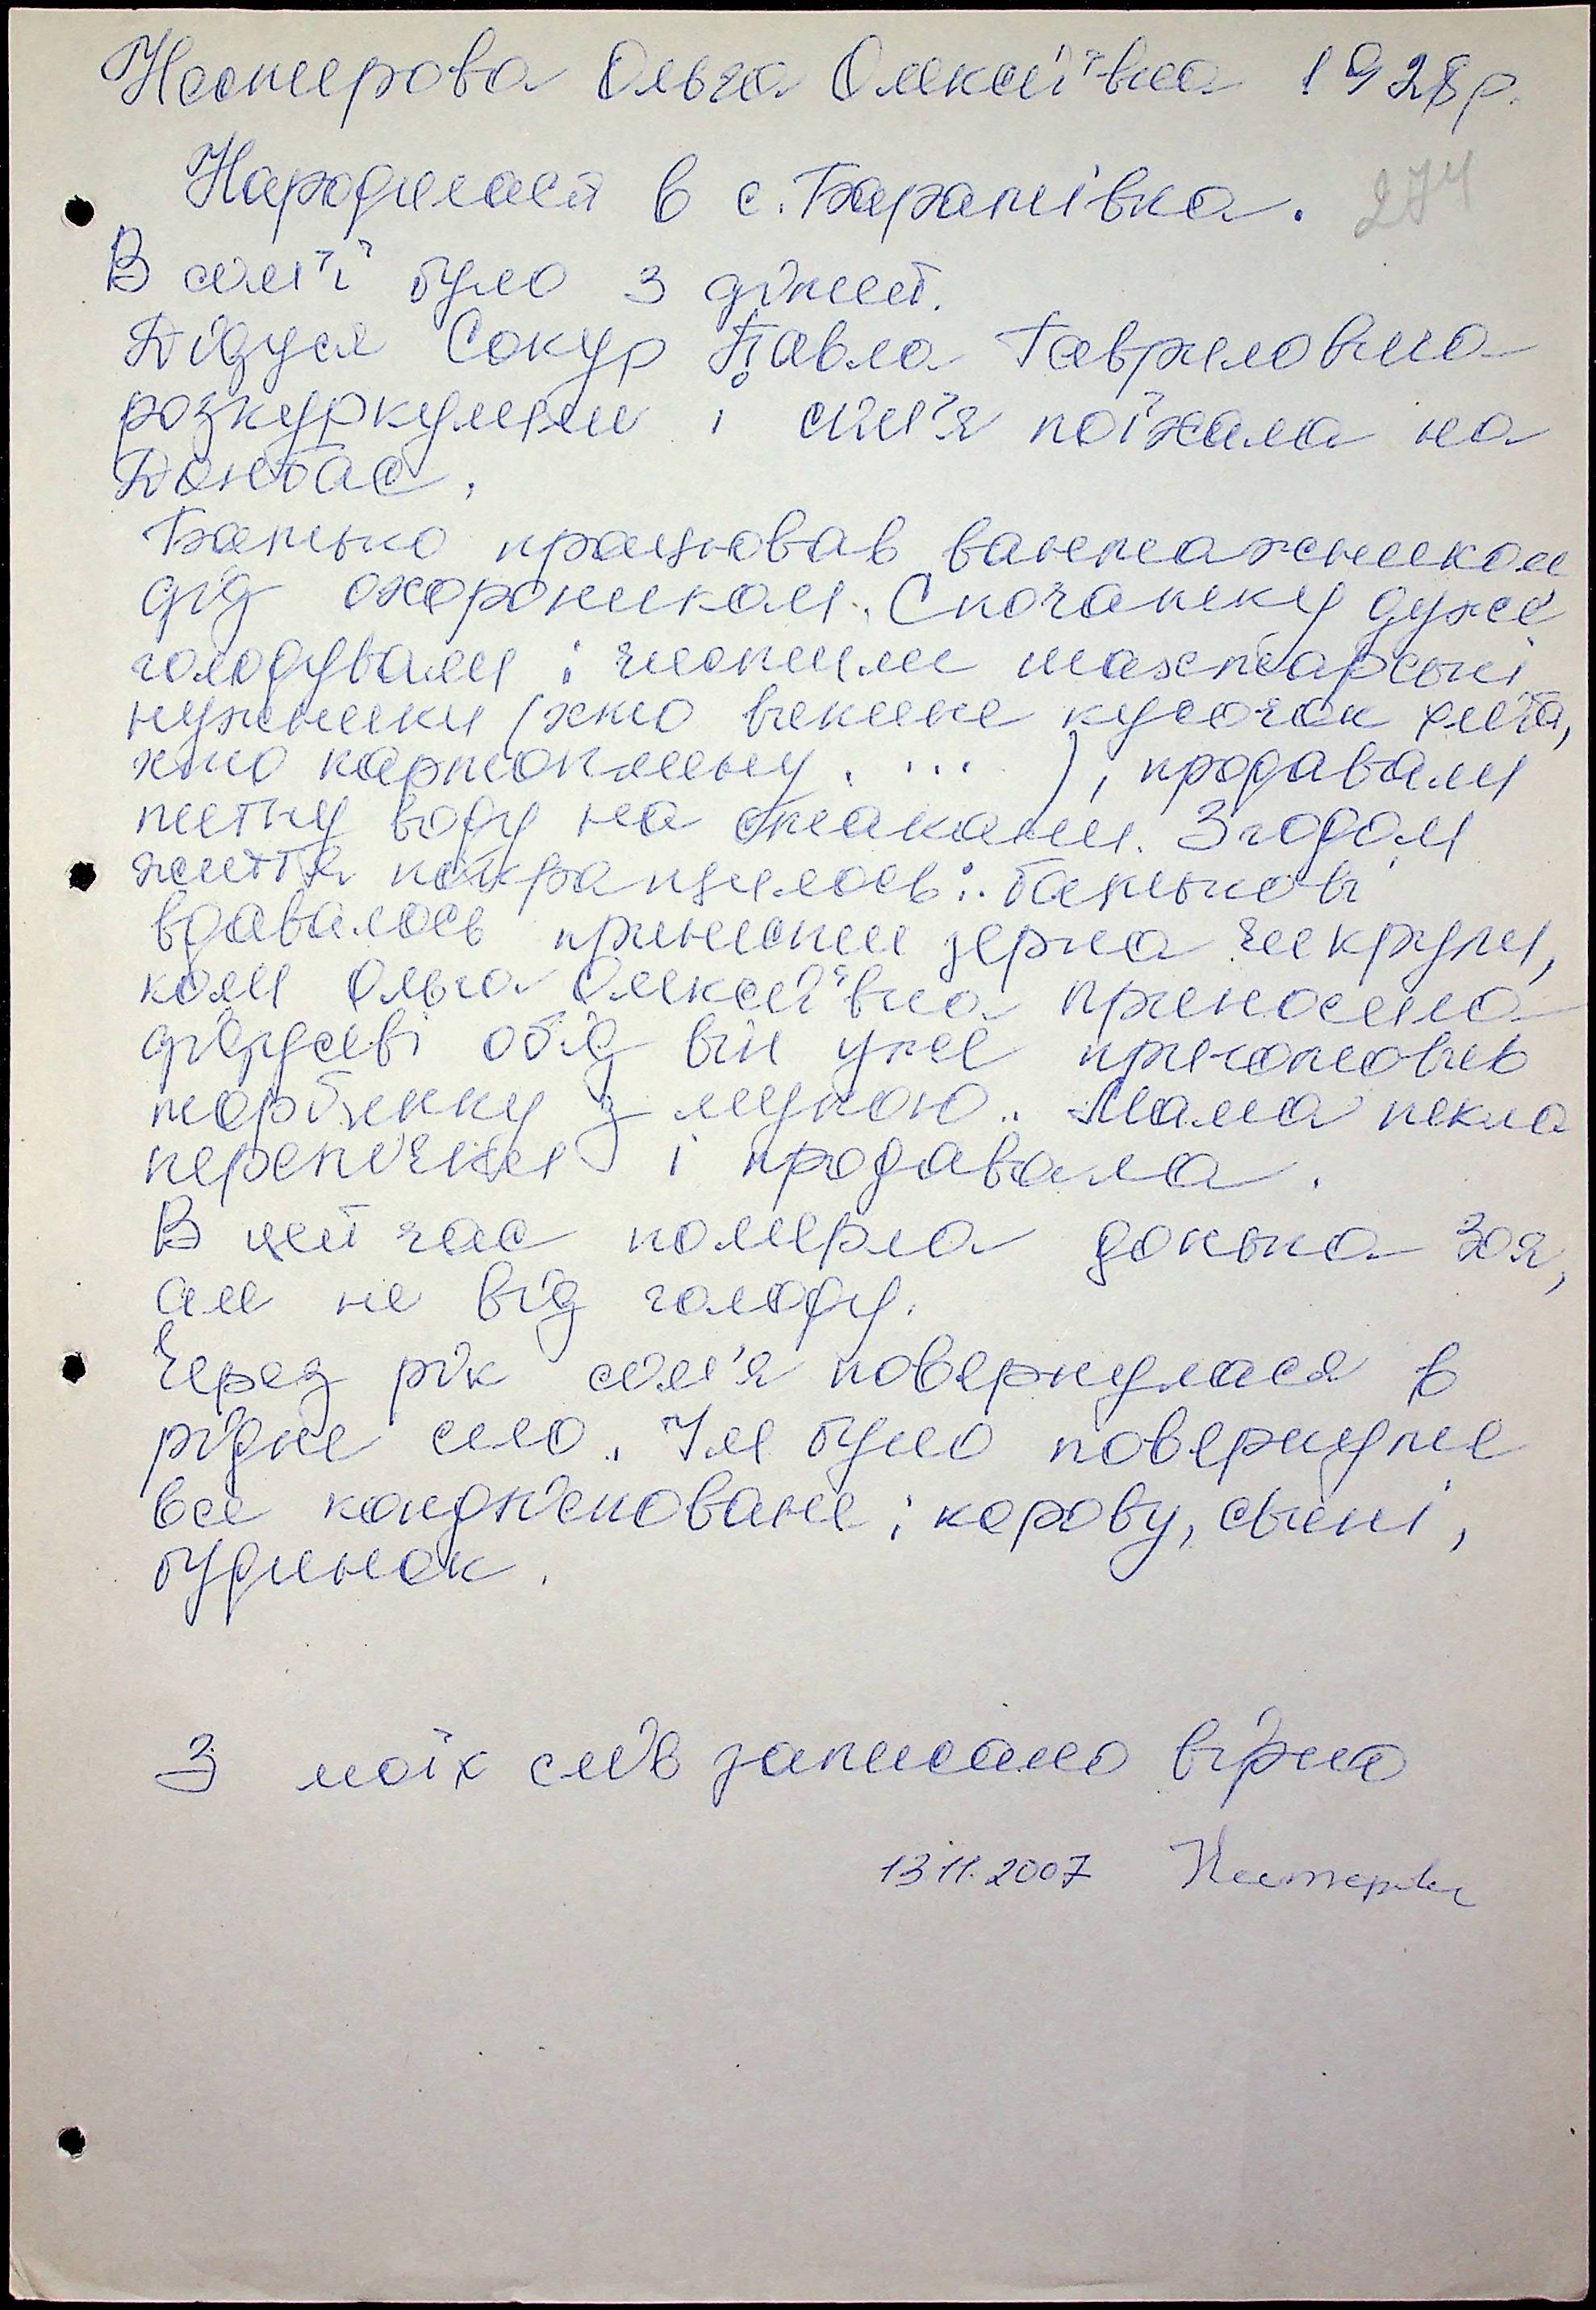 Нестерова Ольга Олексіївна 1928р.
274
Народилася в с. Баратівка.
В сім'ї було 3 дітей.
Дідуся Сокур Павла Гавриловича
розкуркулили і сім'я поїхала на
Донбас.
Батько працював вантажником
дід охороником. Спочатку дуже
голодували: чистили шахтарські
нужники (хто вкине кусочок хліба,
хто картоплину. ... ), продавали
питну воду на стакани. Згодом
життя покращилось: батькові
вдавалось принести зерна чи крупи,
коли Ольга Олексіївна приносила
дідусеві обід він уже приготовив
торбинку з мукою. Мама пекла
перепічки і продавала.
В цей час померла донька Зоя,
але не від голоду.
Через рік сім'я повернулася в
рідне село. Їм було повернуте
все конфісковане: корову, свині,
будинок.
З моїх слів записано вірно
13 11. 2007 Нестерова